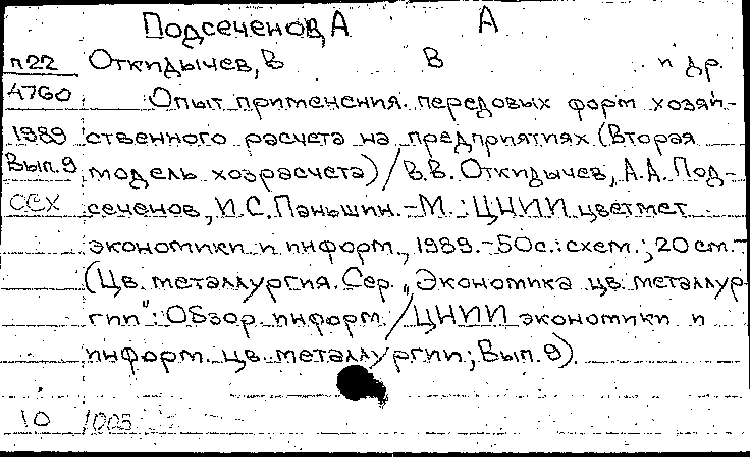 Подсеченов, А А
п22 Откидычев, В В и др.
4760 Опыт применения передовых форм хозяй-
1989 ственного расчета на предприятиях (Вторая
Вып.9 модель хозрасчета) / В.В. Откидычев, А.А. Под-
ССХ сеченов, И.С. Паньшин. - М.: ЦНИИ цветмет
экономики и информ., 1989. - 50с.: схем.; 20 см. -
(Цв. металлургия. Сер. „Экономика цв. металлур-
гии": Обзор. информ. / ЦНИИ экономики и
информ. цв. металлургии; Вып. 9).
10 1005